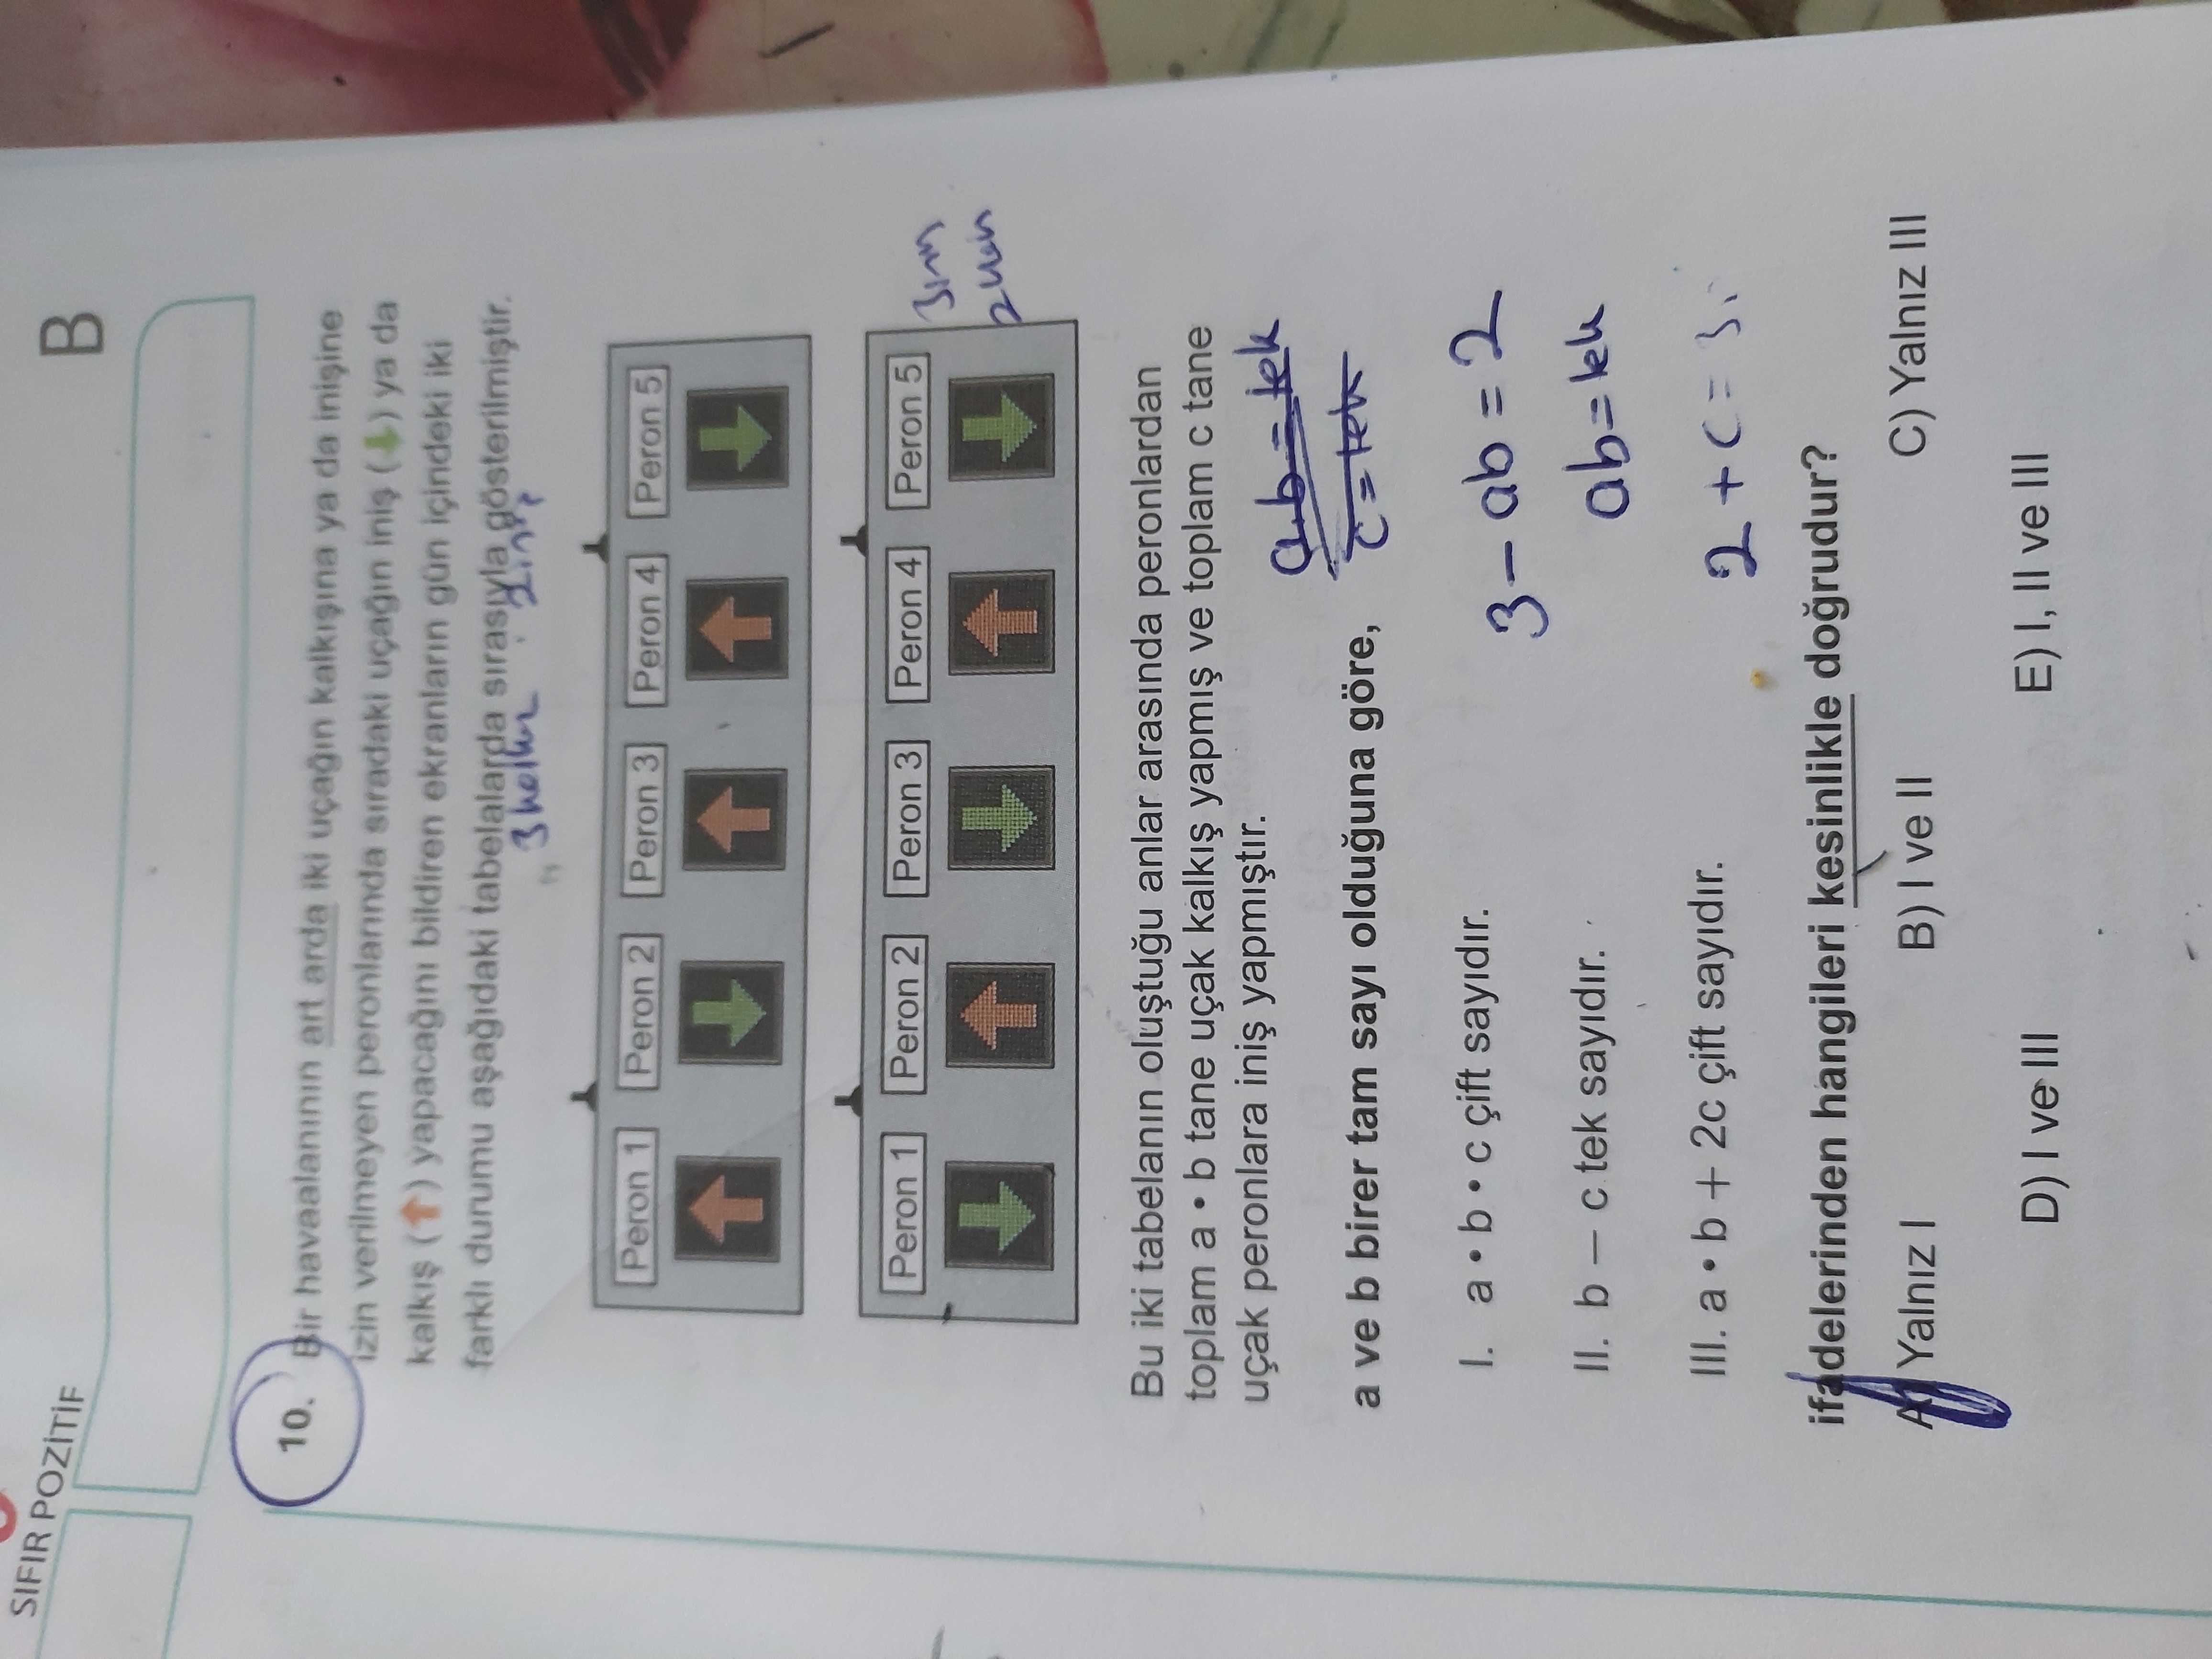 SIFIR POZİTİF
B
10. Bir havaalanının art arda iki uçağın kalkışına ya da inişine
izin verilmeyen peronlarında sıradaki uçağın iniş (↓) ya da
kalkış (↑) yapacağını bildiren ekranların gün içindeki iki
farklı durumu aşağıdaki tabelalarda sırasıyla gösterilmiştir.
Peron 1 Peron 2 Peron 3 Peron 4 Peron 5
Peron 1 Peron 2 Peron 3 Peron 4 Peron 5
Bu iki tabelanın oluştuğu anlar arasında peronlardan
toplam a • b tane uçak kalkış yapmış ve toplam c tane
uçak peronlara iniş yapmıştır.
a.b = tek
c = tek
a ve b birer tam sayı olduğuna göre,
3 - ab = 2
I. a • b • c çift sayıdır.
ab = tek
II. b – c tek sayıdır.
2 + c = 3
III. a • b + 2c çift sayıdır.
ifadelerinden hangileri kesinlikle doğrudur?
A) Yalnız I B) I ve II C) Yalnız III
D) I ve III E) I, II ve III